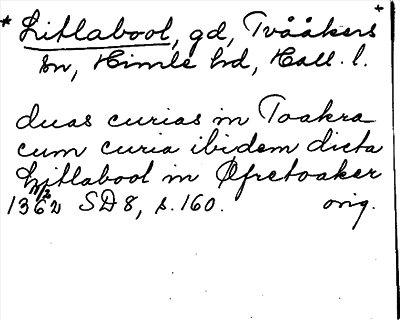 * Litlabool, gd, Tvååkers +
sn, Himle hd, Hall. l.
duas curias in Toakra
cum curia ibidem dicta
Litlabool in Øfretoaker
1362 SD 8, s. 160. orig.